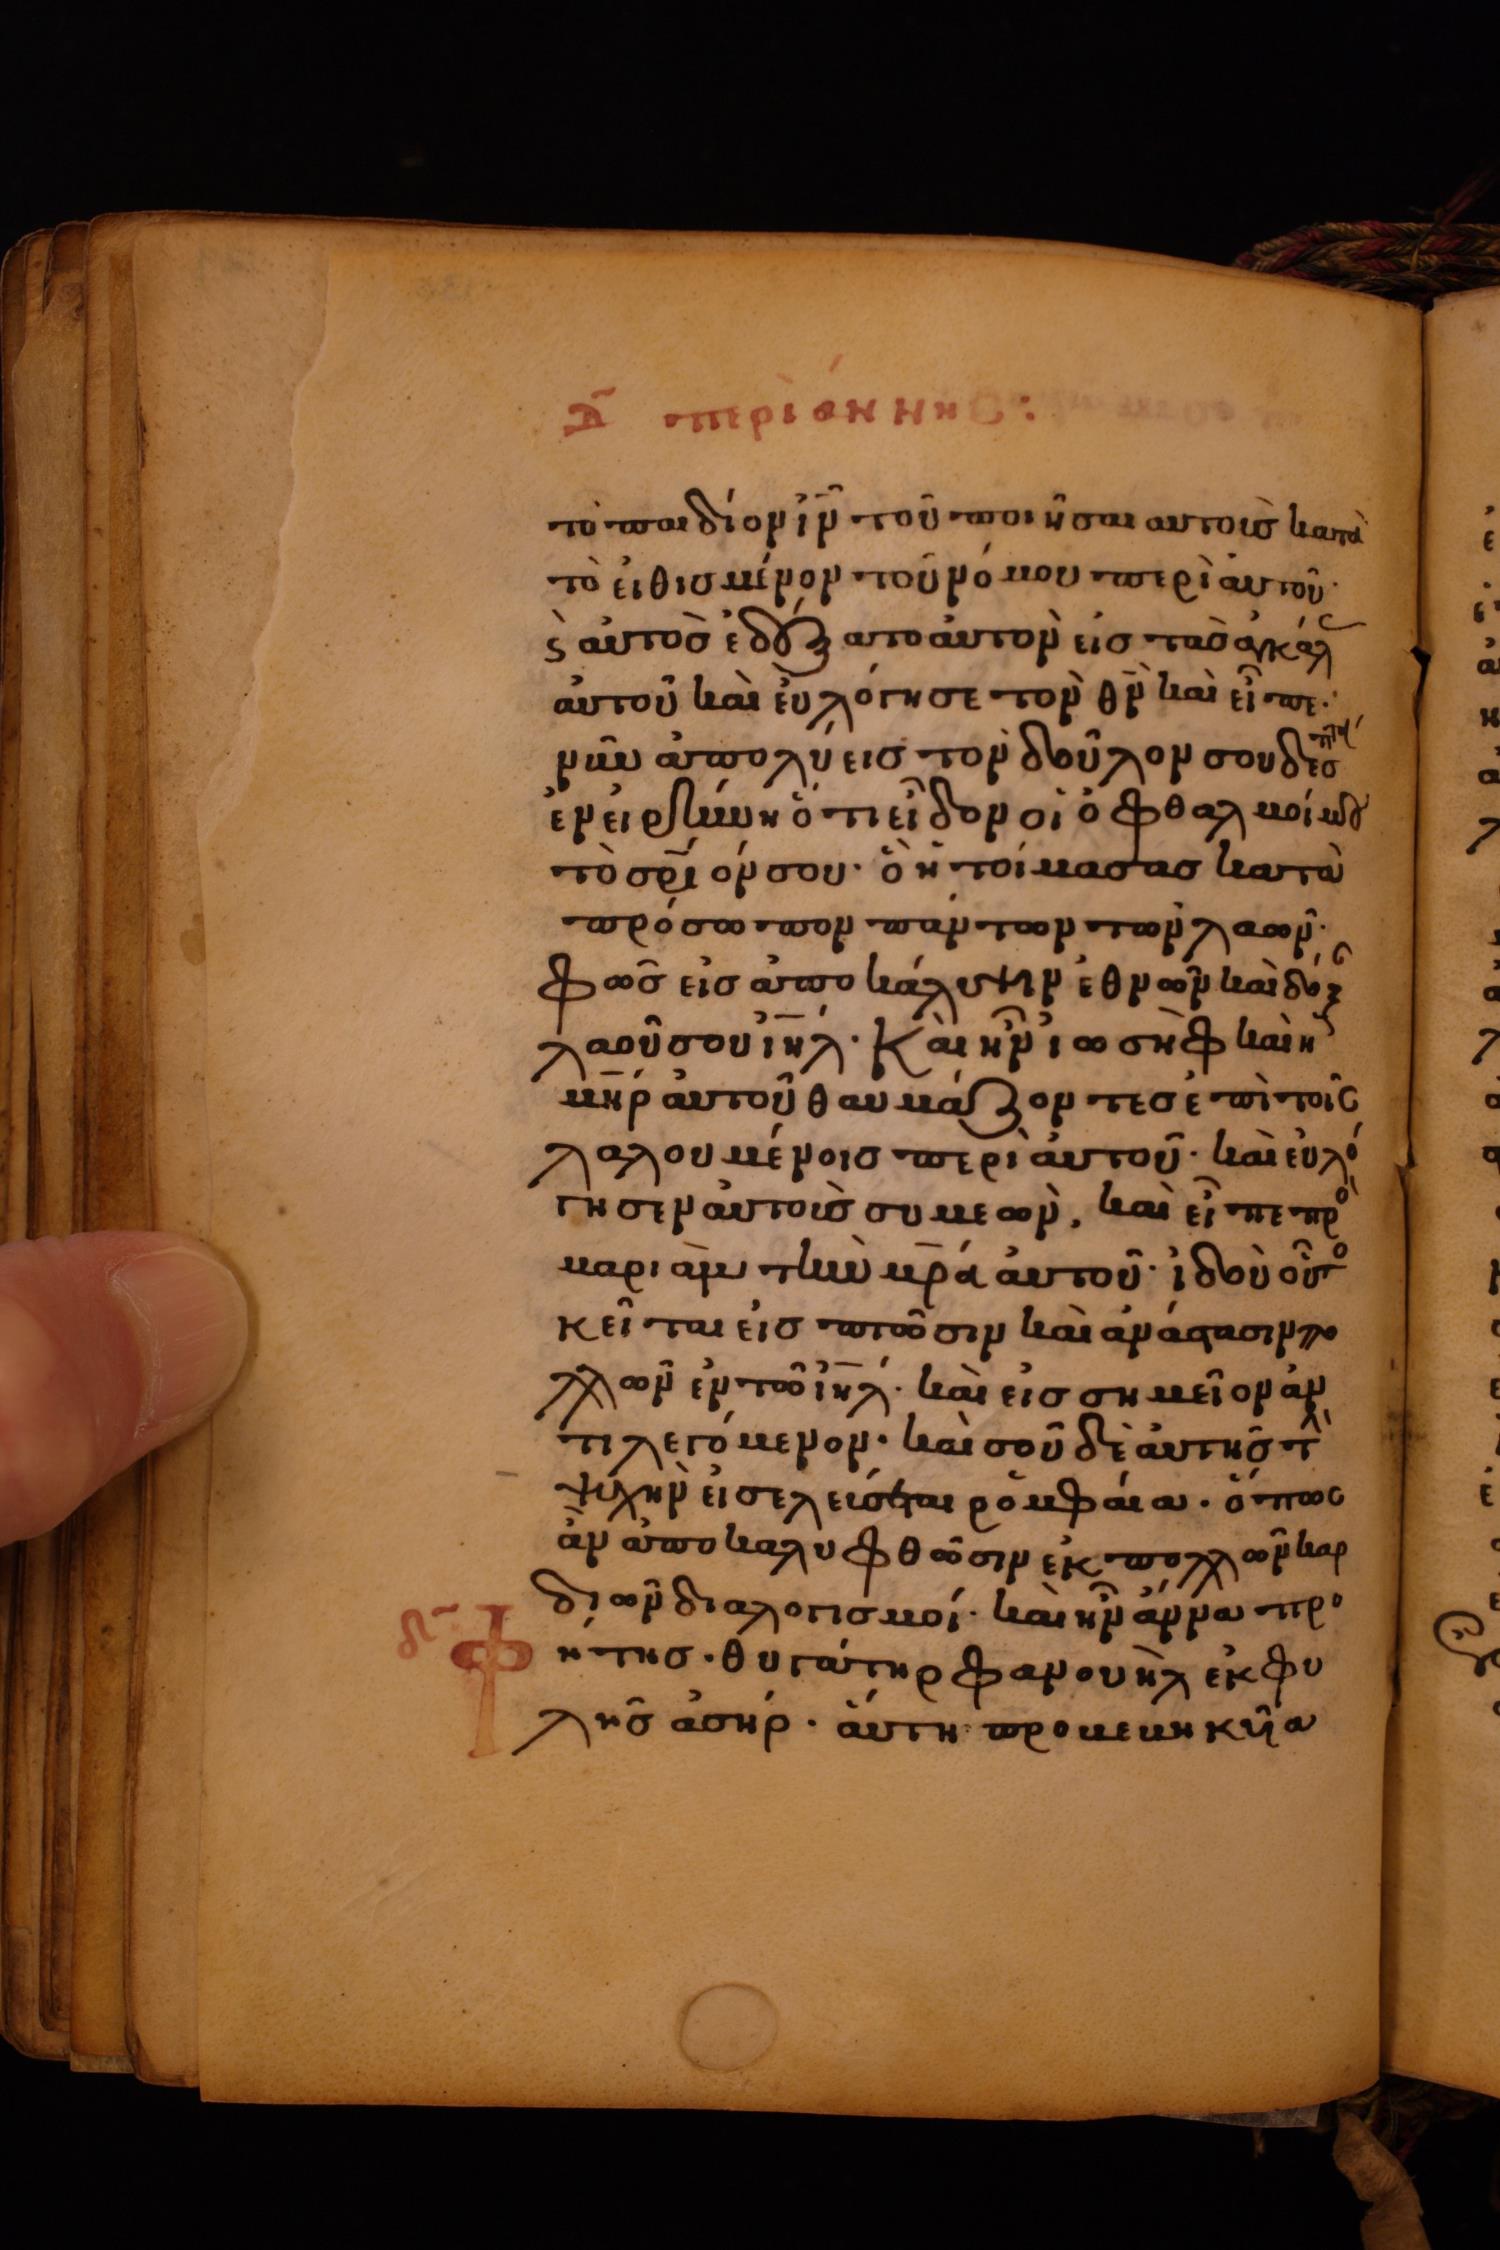 δ̄ περὶ ἄννης:
τὸ παιδίον ἰν̄ τοῦ ποιῆσαι αυτοὺσ κατὰ
τὸ ἐιθισμένον τοῦ νόμου περὶ ἀυτοῦ·
ϛ̀ ἀυτοσ ἐδέξατο ἀυτὸν εἰσ τασ ἀγκάλ
ἀυτοῦ καὶ ἐυλόγησε τὸν θν̄ καὶ εἶπε·
νῦν ἀπολύεισ τὸν δοῦλον σου δεσπτα
ἐν εἰρήνη ὅτι εἶδον οἱ ὀφθαλμοί μου
τὸ σρ̄ιόν σου· ὃ ἡτοίμασασ κατὰ
πρόσωπον πάντων τῶν λαῶν·
φῶσ εἰσ ἀποκάλυψιν ἐθνῶν καὶ δόξ
λαοῦ σου ἰηλ̄· Καὶ ἦν ἰωσὴφ καὶ η
μη̄ρ ἀυτοῦ θαυμάζοντεσ ἐπὶ τοῖσ
λαλουμένοισ περὶ ἀυτοῦ· καὶ ἐυλό
γησεν ἀυτοὺσ συμεὼν, καὶ εἶπε πρὸ
μαριὰμ τὴν μρ̄ά ἀυτοῦ· ἰδοὺ οὗτο
κεῖται εἰσ πτῶσιν καὶ ἀνάστασιν πο
λλῶν ἐν τῶ ἰηλ̄· καὶ εἰσ σημεῖον ἀν
τιλεγόμενον· καὶ σοῦ δὲ ἀυτῆσ τὴ
ψυχὴν εἰσελεύσεται ρομφαία· ὅπωσ
ἂν ἀποκαλυφθῶσιν ἐκ πολλῶν καρ
διῶν διαλογισμοί· καὶ ἦν ἄννα προ
δ̄ φήτησ· θυγάτηρ φανουὴλ ἐκ φυ
λῆσ ἀσήρ· ἅυτη προμεμηκῦια